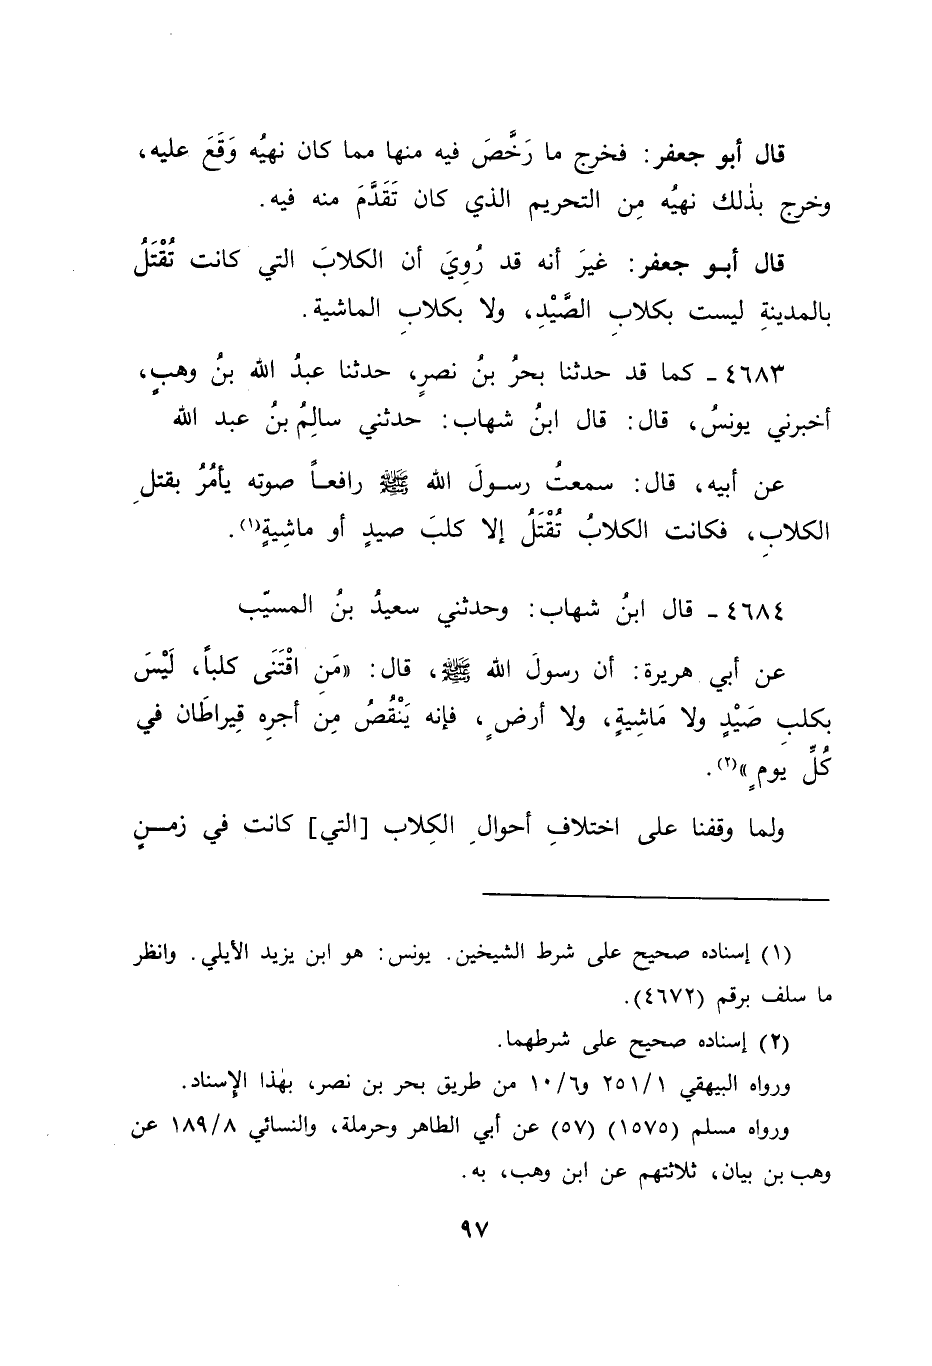 قال أبو جعفر: فخرج ما رَخَّصَ فيه منها مما كان نهيُه وَقَعَ عليه،
وخرج بذٰلك نهيُه مِن التحريم الذي كان تَقَدَّمَ منه فيه.
قال أبو جعفر: غيرَ أنه قد رُوِيَ أن الكلابَ التي كانت تُقْتَلُ
بالمدينةِ ليست بكلابِ الصَّيْدِ، ولا بكلابِ الماشية.
٤٦٨٣ - كما قد حدثنا بحرُ بنُ نصرٍ، حدثنا عبدُ الله بنُ وهبٍ،
أخبرني يونسُ، قال: قال ابنُ شهاب: حدثني سالِمُ بنُ عبد الله
عن أبيه، قال: سمعتُ رسولَ الله ﷺ رافعاً صوته يأمُرُ بقتلِ
الكلابِ، فكانت الكلابُ تُقْتَلُ إلا كلبَ صيدٍ أو ماشِيةٍ(١).
٤٦٨٤ - قال ابنُ شهاب: وحدثني سعيدُ بنُ المسيّب
عن أبي هريرة: أن رسولَ الله ﷺ، قال: «مَنِ اقْتَنَى كلباً، لَيْسَ
بكلبِ صَيْدٍ ولا مَاشِيةٍ، ولا أرضٍ، فإنه يَنْقُصُ مِن أجرِه قِيراطَان في
كُلِّ يومٍ»(٢).
ولما وقفنا على اختلافِ أحوالِ الكِلاب [التي] كانت في زمنٍ
(١) إسناده صحيح على شرط الشيخين. يونس: هو ابن يزيد الأيلي. وانظر
ما سلف برقم (٤٦٧٢).
(٢) إسناده صحيح على شرطهما.
ورواه البيهقي ٢٥١/١ و١٠/٦ من طريق بحر بن نصر، بهٰذا الإسناد.
ورواه مسلم (١٥٧٥) (٥٧) عن أبي الطاهر وحرملة، والنسائي ١٨٩/٨ عن
وهب بن بيان، ثلاثتهم عن ابن وهب، به.
٩٧